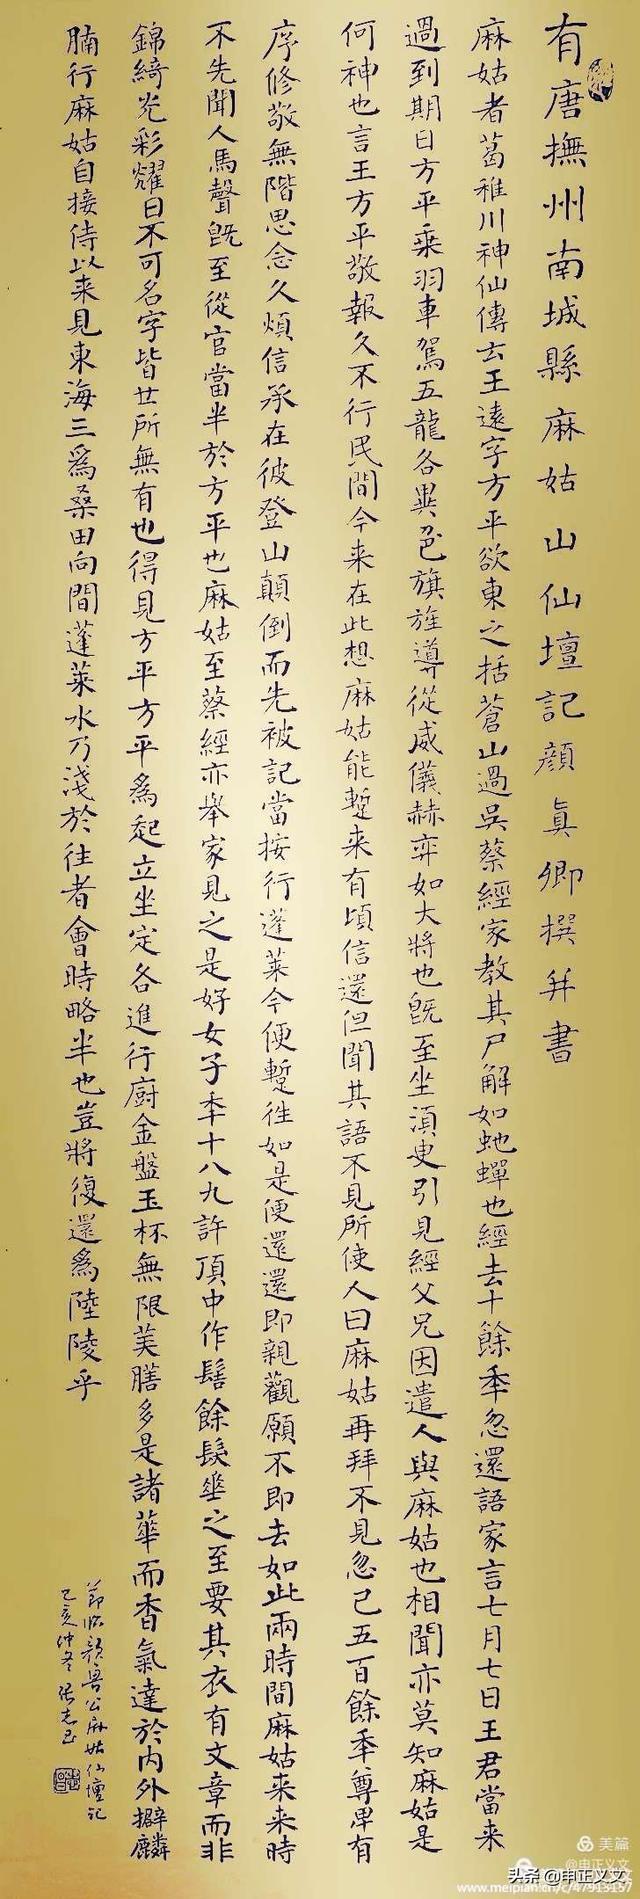 有唐撫州南城縣麻姑山仙壇記顔真卿撰并書
麻姑者葛稚川神仙傳云王遠字方平欲東之括蒼山過吳蔡經家教其尸解如虵蟬也經去十餘年忽還語家言七月七日王君當来
過到期日方平乘羽車駕五龍各異色旗旌導從威儀赫弈如大將也既至坐須臾引見經父兄因遣人與麻姑也相聞亦莫知麻姑是
何神也言王方平敬報久不行民間今来在此想麻姑能暫来有頃信還但聞其語不見所使人曰麻姑再拜不見忽已五百餘年尊卑有
序修敬無階思念久煩信承在彼登山顛倒而先被記當按行蓬萊今便暫往如是便還還即親觀願不即去如此兩時間麻姑来来時
不先聞人馬聲既至從官當半於方平也麻姑至蔡經亦舉家見之是好女子年十八九許頂中作髻餘髮垂之至要其衣有文章而非
錦綺光彩耀日不可名字皆世所無有也得見方平方平為起立坐定各進行廚金盤玉杯無限美膳多是諸華而香氣達於内外擗麟
腩行麻姑自接侍以来見東海三為桑田向間蓬萊水乃淺於往者會時略半也豈將復還為陸陵乎
節臨顔魯公麻姑仙壇記
己亥仲冬張志
美篇
头条 @申正义文
www.meipian.cn/c/47913157